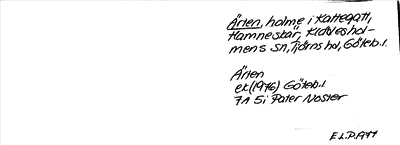 Ärten, holme i Kattegatt,
Hamneskär, Klövleshol-
mens sn, Tjörns hd, Göteb.l.
Ärten
ek(1976) Göteb.l
7A 5i Pater Noster
E.L.P.1977